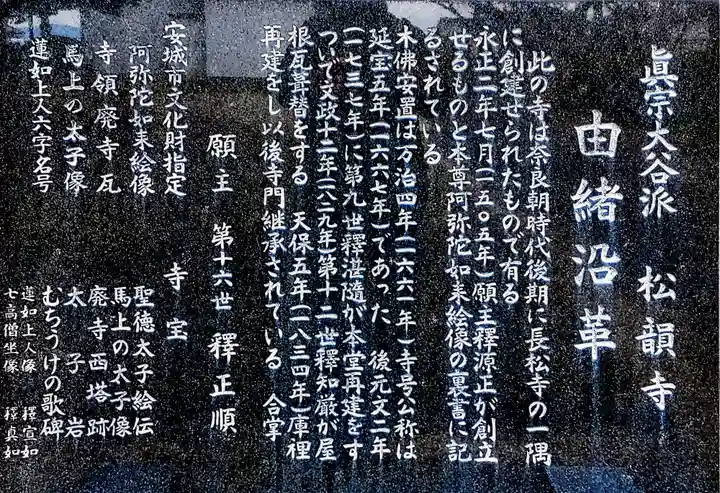 眞宗大谷派　松韻寺
由緒沿革
此の寺は奈良朝時代後期に長松寺の一隅
に創建せられたもので有る
永正二年七月(一五〇五年)願主釋源正が創立
せるものと本尊阿弥陀如来絵像の裏書に記
るされている
木佛安置は万治四年(一六六一年)寺号公称は
延宝五年(一六六七年)であった　後元文二年
(一七三七年)に第九世釋湛隨が本堂再建をす
ついで文政十二年(一八二九年)第十二世釋知厳が屋
根瓦葺替をする　天保五年(一八三四年)庫裡
再建をし以後寺門継承されている　合掌
願主　第十六世　釋正順
安城市文化財指定
阿弥陀如来絵像
寺領廃寺瓦
馬上の太子像
蓮如上人六字名号
寺宝
聖徳太子絵伝
馬上の太子像
廃寺西塔跡
太子岩
むちうけの歌碑
蓮如上人像　釋宣如
七高僧坐像　釋真如